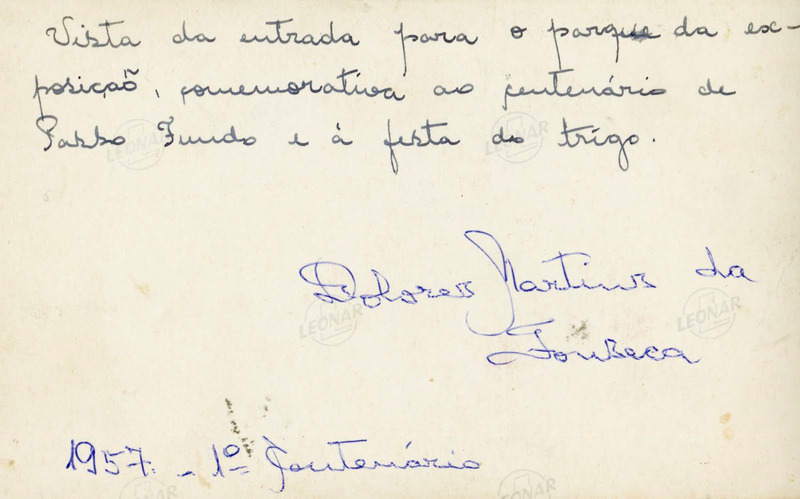 Vista da entrada para o parque da ex-
posição, comemorativa ao centenário de
Passo Fundo e à festa do trigo.
Dolores Martins da
Fonseca
1957. - 1º Centenário
LEONAR
LEONAR
LEONAR
LEONAR
LEONAR
LEONAR